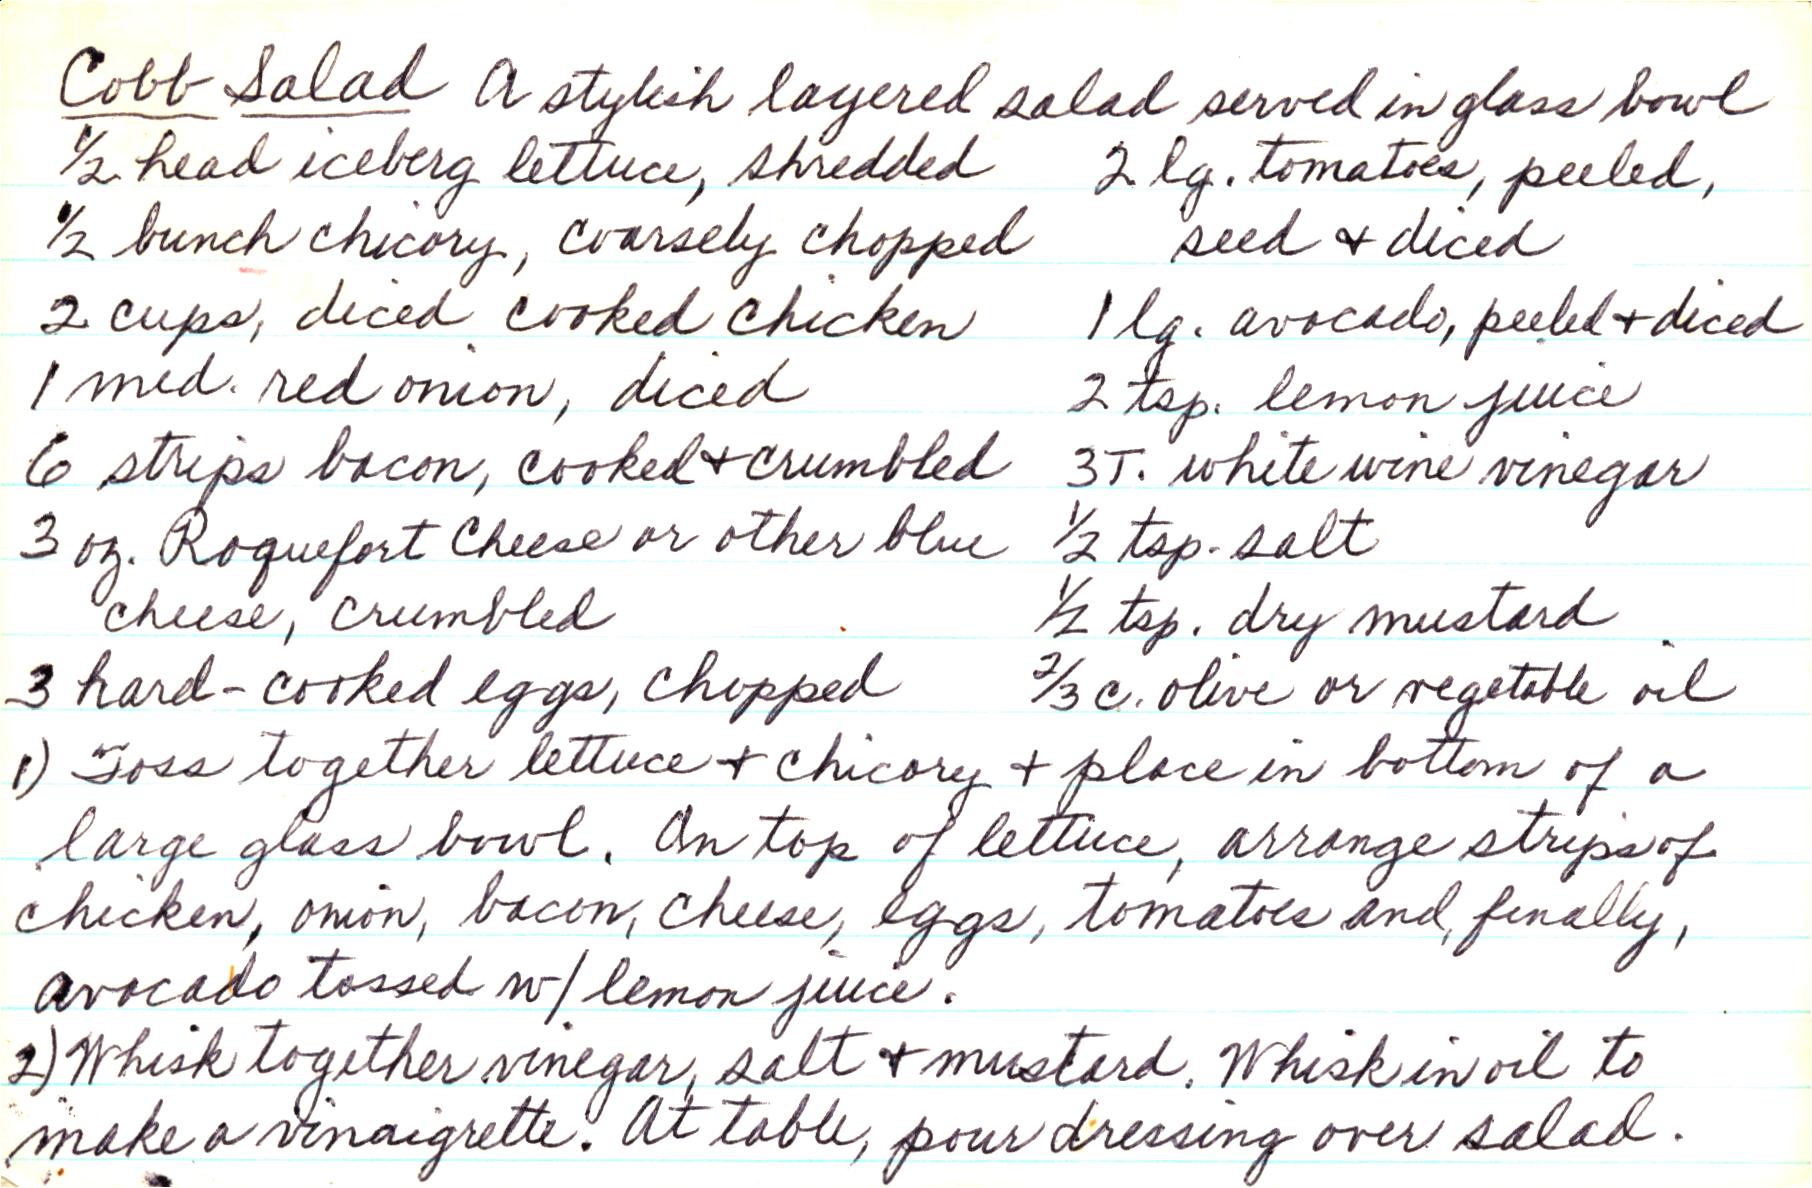 Cobb Salad A stylish layered salad served in glass bowl
1/2 head iceberg lettuce, shredded
1/2 bunch chicory, coarsely chopped
2 cups, diced cooked chicken
1 med. red onion, diced
6 strips bacon, cooked + crumbled
3 oz. Roquefort Cheese or other blue
cheese, crumbled
3 hard-cooked eggs, chopped
2 lg. tomatoes, peeled,
seed + diced
1 lg. avocado, peeled + diced
2 tsp. lemon juice
3T. white wine vinegar
1/2 tsp. salt
1/2 tsp. dry mustard
2/3 c. olive or vegetable oil
1) Toss together lettuce + chicory + place in bottom of a
large glass bowl. On top of lettuce, arrange strips of
chicken, onion, bacon, cheese, eggs, tomatoes and, finally,
avocado tossed w/ lemon juice.
2) Whisk together vinegar, salt + mustard. Whisk in oil to
make a vinaigrette. At table, pour dressing over salad.